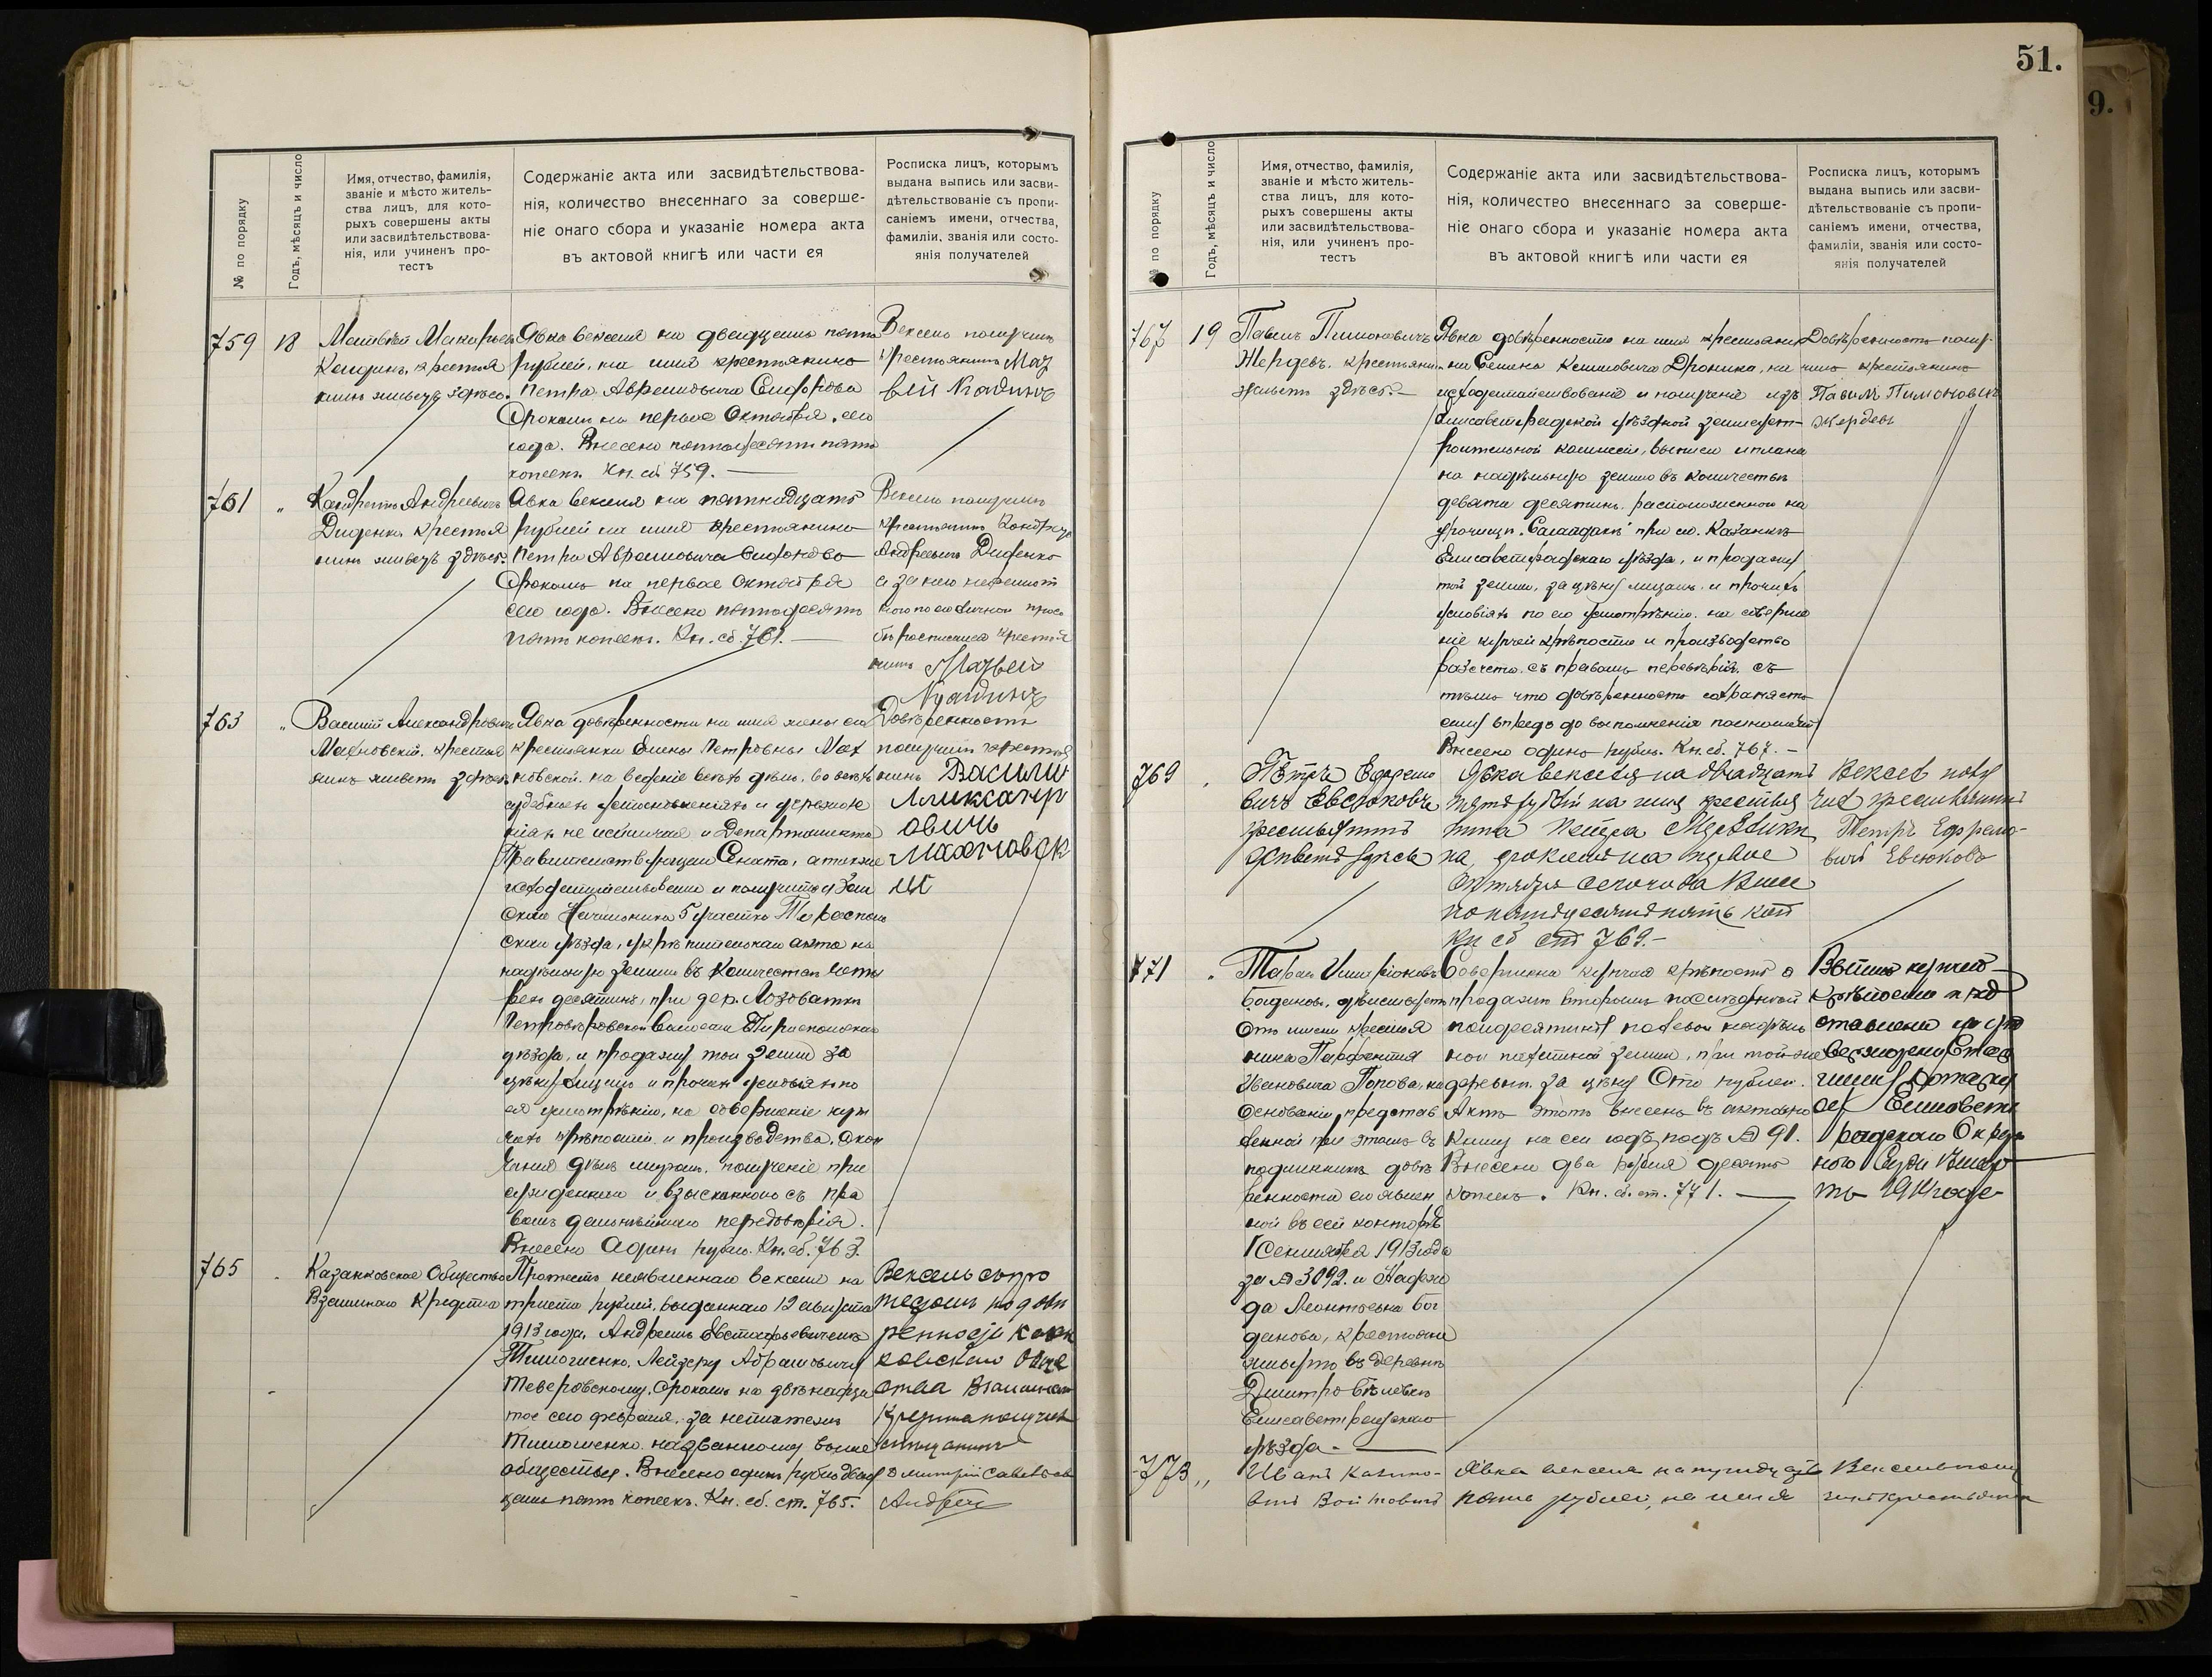 51.
9.
№ по порядку
Годъ, мѣсяцъ и число
Имя, отчество, фамилія,
званіе и мѣсто житель-
ства лицъ, для кото-
рыхъ совершены акты
или засвидѣтельствова-
нія, или учиненъ про-
тестъ
Содержаніе акта или засвидѣтельствова-
нія, количество внесеннаго за соверше-
ніе онаго сбора и указаніе номера акта
въ актовой книгѣ или части ея
Росписка лицъ, которымъ
выдана выпись или засви-
дѣтельствованіе съ пропи-
саніемъ имени, отчества,
фамиліи, званія или состо-
янія получателей
759
18
Явка векселя на двадцать пять
рублей, на имя крестьянина
Петра Авремовича
Срокомъ на первое Октября сего
года. Внесено пятьдесятъ пять
копеекъ. Кн. сб. 759.
Вексель получилъ
крестьянинъ
761
"
Андреевичъ
Диденко крестья
нинъ живетъ здѣсь.
Явка векселя на пятнадцать
рублей на имя крестьянина
Петра Авремовича
Срокомъ на первое Октября
сего года. Внесено пятьдесятъ
пять копеекъ. Кн. сб. 761.
Вексель получилъ
крестьянинъ
Андреевичъ Диденко
а за него неграмот
наго по его личной прось
бѣ росписался крестья
нинъ
763
"
Василій Александровичъ
Махновскій, крестья
нинъ живетъ здѣсь
Явка довѣренности на имя жены его
крестьянки Елены Петровны Мах
новской на веденіе всѣхъ дѣлъ, во всѣхъ
судебныхъ установленіяхъ и
не исключая и Департамента
Правительствующаго Сената, а также
ходатайствовать и получить у Зем
скаго Начальника 5 участка Тирасполь
скаго уѣзда, укрѣпительнаго акта на
надѣльную землю въ количествѣ четы
рехъ десятинъ, при дер. Лозоватки
Петровѣровской волости Тираспольскаго
уѣзда, и продажу той земли за
цѣну лицамъ и прочихъ условіяхъ по
ея усмотрѣнію, на совершеніе куп
чихъ крѣпостей и производства, окон
чанія дѣлъ миромъ, полученіе при
сужденнаго и взысканнаго съ пра
вомъ дальнѣйшаго передовѣрія.
Внесено Одинъ рубль. Кн. сб. 763.
Довѣренность
получилъ крестья
нинъ Василий
Александр
овичъ
Махновск
ій
765
Казанковское Общество
Взаимнаго Кредита
Протестъ неявленнаго векселя на
триста рублей, выданнаго 12 августа
1913 года, Андреемъ Евстафьевичемъ
Тимошенко, Лейзеру Абрамовичу
Теверовскому, срокомъ на двѣнадца
тое сего февраля, за неплатежъ
Тимошенко названному выше
обществу. Внесено одинъ рубль двад
цать пять копеекъ. Кн. сб. ст. 765.
Вексель съ про
тестомъ по довѣ
ренности Казан
ковскаго Обще
ства Взаимнаго
Кредита получилъ
мѣщанинъ
№ по порядку
Годъ, мѣсяцъ и число
Имя, отчество, фамилія,
званіе и мѣсто житель-
ства лицъ, для кото-
рыхъ совершены акты
или засвидѣтельствова-
нія, или учиненъ про-
тестъ
Содержаніе акта или засвидѣтельствова-
нія, количество внесеннаго за соверше-
ніе онаго сбора и указаніе номера акта
въ актовой книгѣ или части ея
Росписка лицъ, которымъ
выдана выпись или засви-
дѣтельствованіе съ пропи-
саніемъ имени, отчества,
фамиліи, званія или состо-
янія получателей
767
19
Павелъ Пимоновичъ
Жердевъ, крестьянинъ
живетъ здѣсь.
Явка довѣренности на имя крестьяни
на Семена Дроника, на
ходатайствованіе и полученіе изъ
Елисаветградской уѣздной землеуст-
роительной коммисіи, выписи и плана
на надѣльную землю въ количествѣ
девяти десятинъ, расположенной на
урочищѣ при сл. Казанкѣ
Елисаветградскаго уѣзда, и продажу
той земли, за цѣну лицамъ и прочихъ
условіяхъ по его усмотрѣнію, на соверше
ніе купчей крѣпости и производство
разсчета, съ правомъ перевѣрія, съ
тѣмъ что довѣренность сохраняетъ
силу впредь до выполненія
Внесено одинъ рубль. Кн. сб. 767.
Довѣренность полу-
чилъ крестьянинъ
Павелъ Пимоновичъ
Жердевъ
769
Петръ Ефремо
вичъ Евсюковъ
крестьянинъ
живетъ здѣсь
Явка векселя на двадцать
пять рублей на имя крестья
нина Петра
на, срокомъ на первое
октября сего года Внесе
но пятьдесятъ пять коп
Кн сб ст 769.-
Вексель полу
чилъ крестьянинъ
Петръ Ефремо-
вичъ Евсюковъ
771
Богдановъ, дѣйствующій
отъ имени крестья
нина Парфентія
Ивановича Попова, на
основаніи представ
ленной при этомъ въ
подлинникѣ довѣ
ренности его явлен
ной въ сей конторѣ
1 Сентября 1913 года
за № 3092. и Надеж
да Леонтьевна Бог
данова, крестьяне
живутъ въ деревнѣ
Дмитро Бѣлевкѣ
Елисаветградскаго
уѣзда.
Совершена купчая крѣпость о
продажѣ вторымъ послѣдней
полдесятины полевой надѣль
ной пахатной земли, при той же
деревнѣ за цѣну Сто рублей.
Актъ этотъ внесенъ въ актовую
книгу на сей годъ подъ № 91.
Внесено два рубля десять
копѣекъ. Кн. сб. ст. 771.
Выпись купчей
крѣпости пред
ставлена на ут
вержденіе Стар
шему Нотаріу
су Елисаветг
радскаго Окруж
наго Суда
1914 года
773
"
Иванъ
Явка векселя на тридцать
пять рублей, на имя
Вексель полу
чилъ крестьянинъ